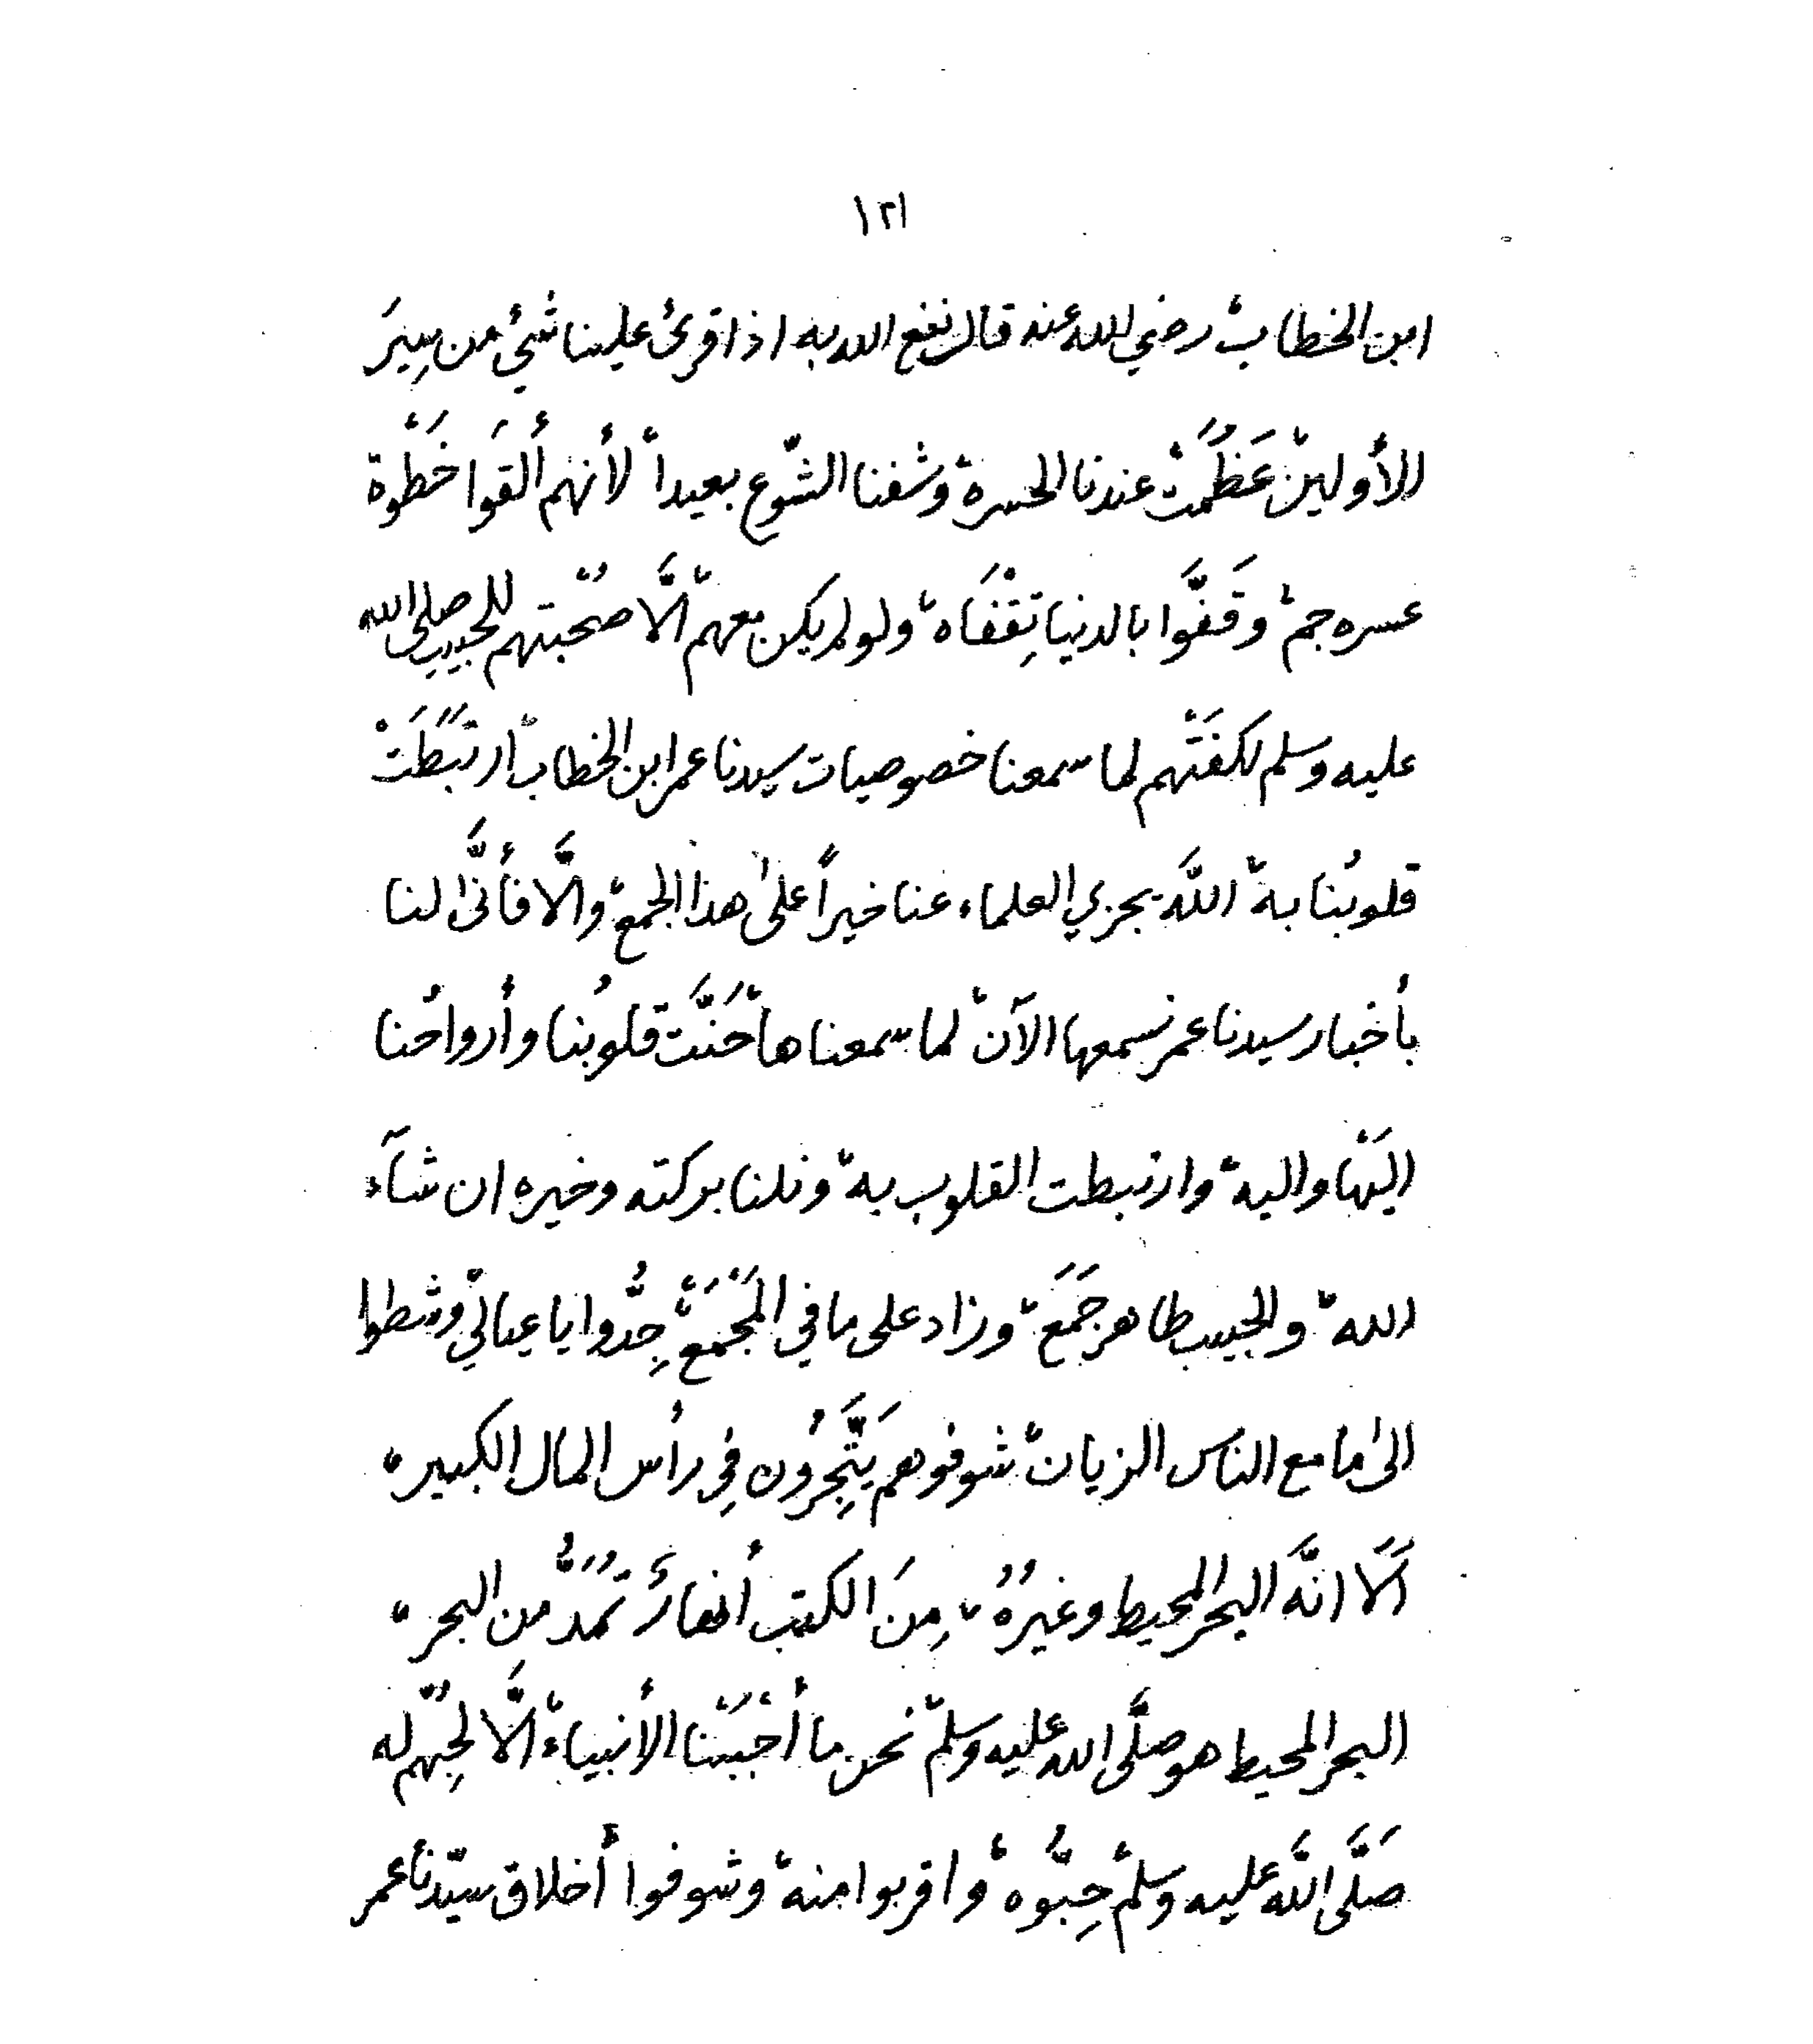 ١٢١
ابن الخطاب، رضي الله عنه قال نفع الله به اذا قرئ علينا شيء من سِيَر
الأولين، عَظُمَت، عندنا الحسره، وشفنا الشّوع بعيداً، لأنهم أَلْقَوا خَطْوة
عسره جم، وقَفَّوا بالدنيا تِقْفَاه، ولو لم يكن معهم، الَّا صُحْبتهم للحبيب صلى الله
عليه وسلم لكفَتْهم لما سمعنا خصوصيات سيدنا عمر ابن الخطاب، ارتبَطَتْ
قلوبُنا به، اللَّه يجزي العلماء عنا خيراً على هذا الجمع، والَّا فأنَّى لنا
بأخبار سيدنا عمر نسمعها الآن، لما سمعناها، حَنَّت قلوبُنا وأرواحُنا
اليَها واليه، وارتبطت القلوب به، ونلنا بركته وخيره ان شآء
الله، والحبيب طاهر جَمَعَ، وزاد على ما في المَجْمَع، جِدُّوا يا عيالي، ونشطوا
الى ما مع الناس الزيان، شوفوهم يَتَّجِرُون فِي رأس المال الكبير،
اَلَا انَّه البحر المحيط وغيرُهُ، مِنَ الكتب أنهارٌ تُمَدُّ من البحر،
البحر المحيط هو صلَّى الله عليه وسلم، نحن ما أحْبَبْنا الأنبياء، الَّا لحِبّهم له
صَلَّى اللَّه عليه وسلم، حِبُّوه، واقربوا منه، وشوفوا أخلاق سيّدنا عمر